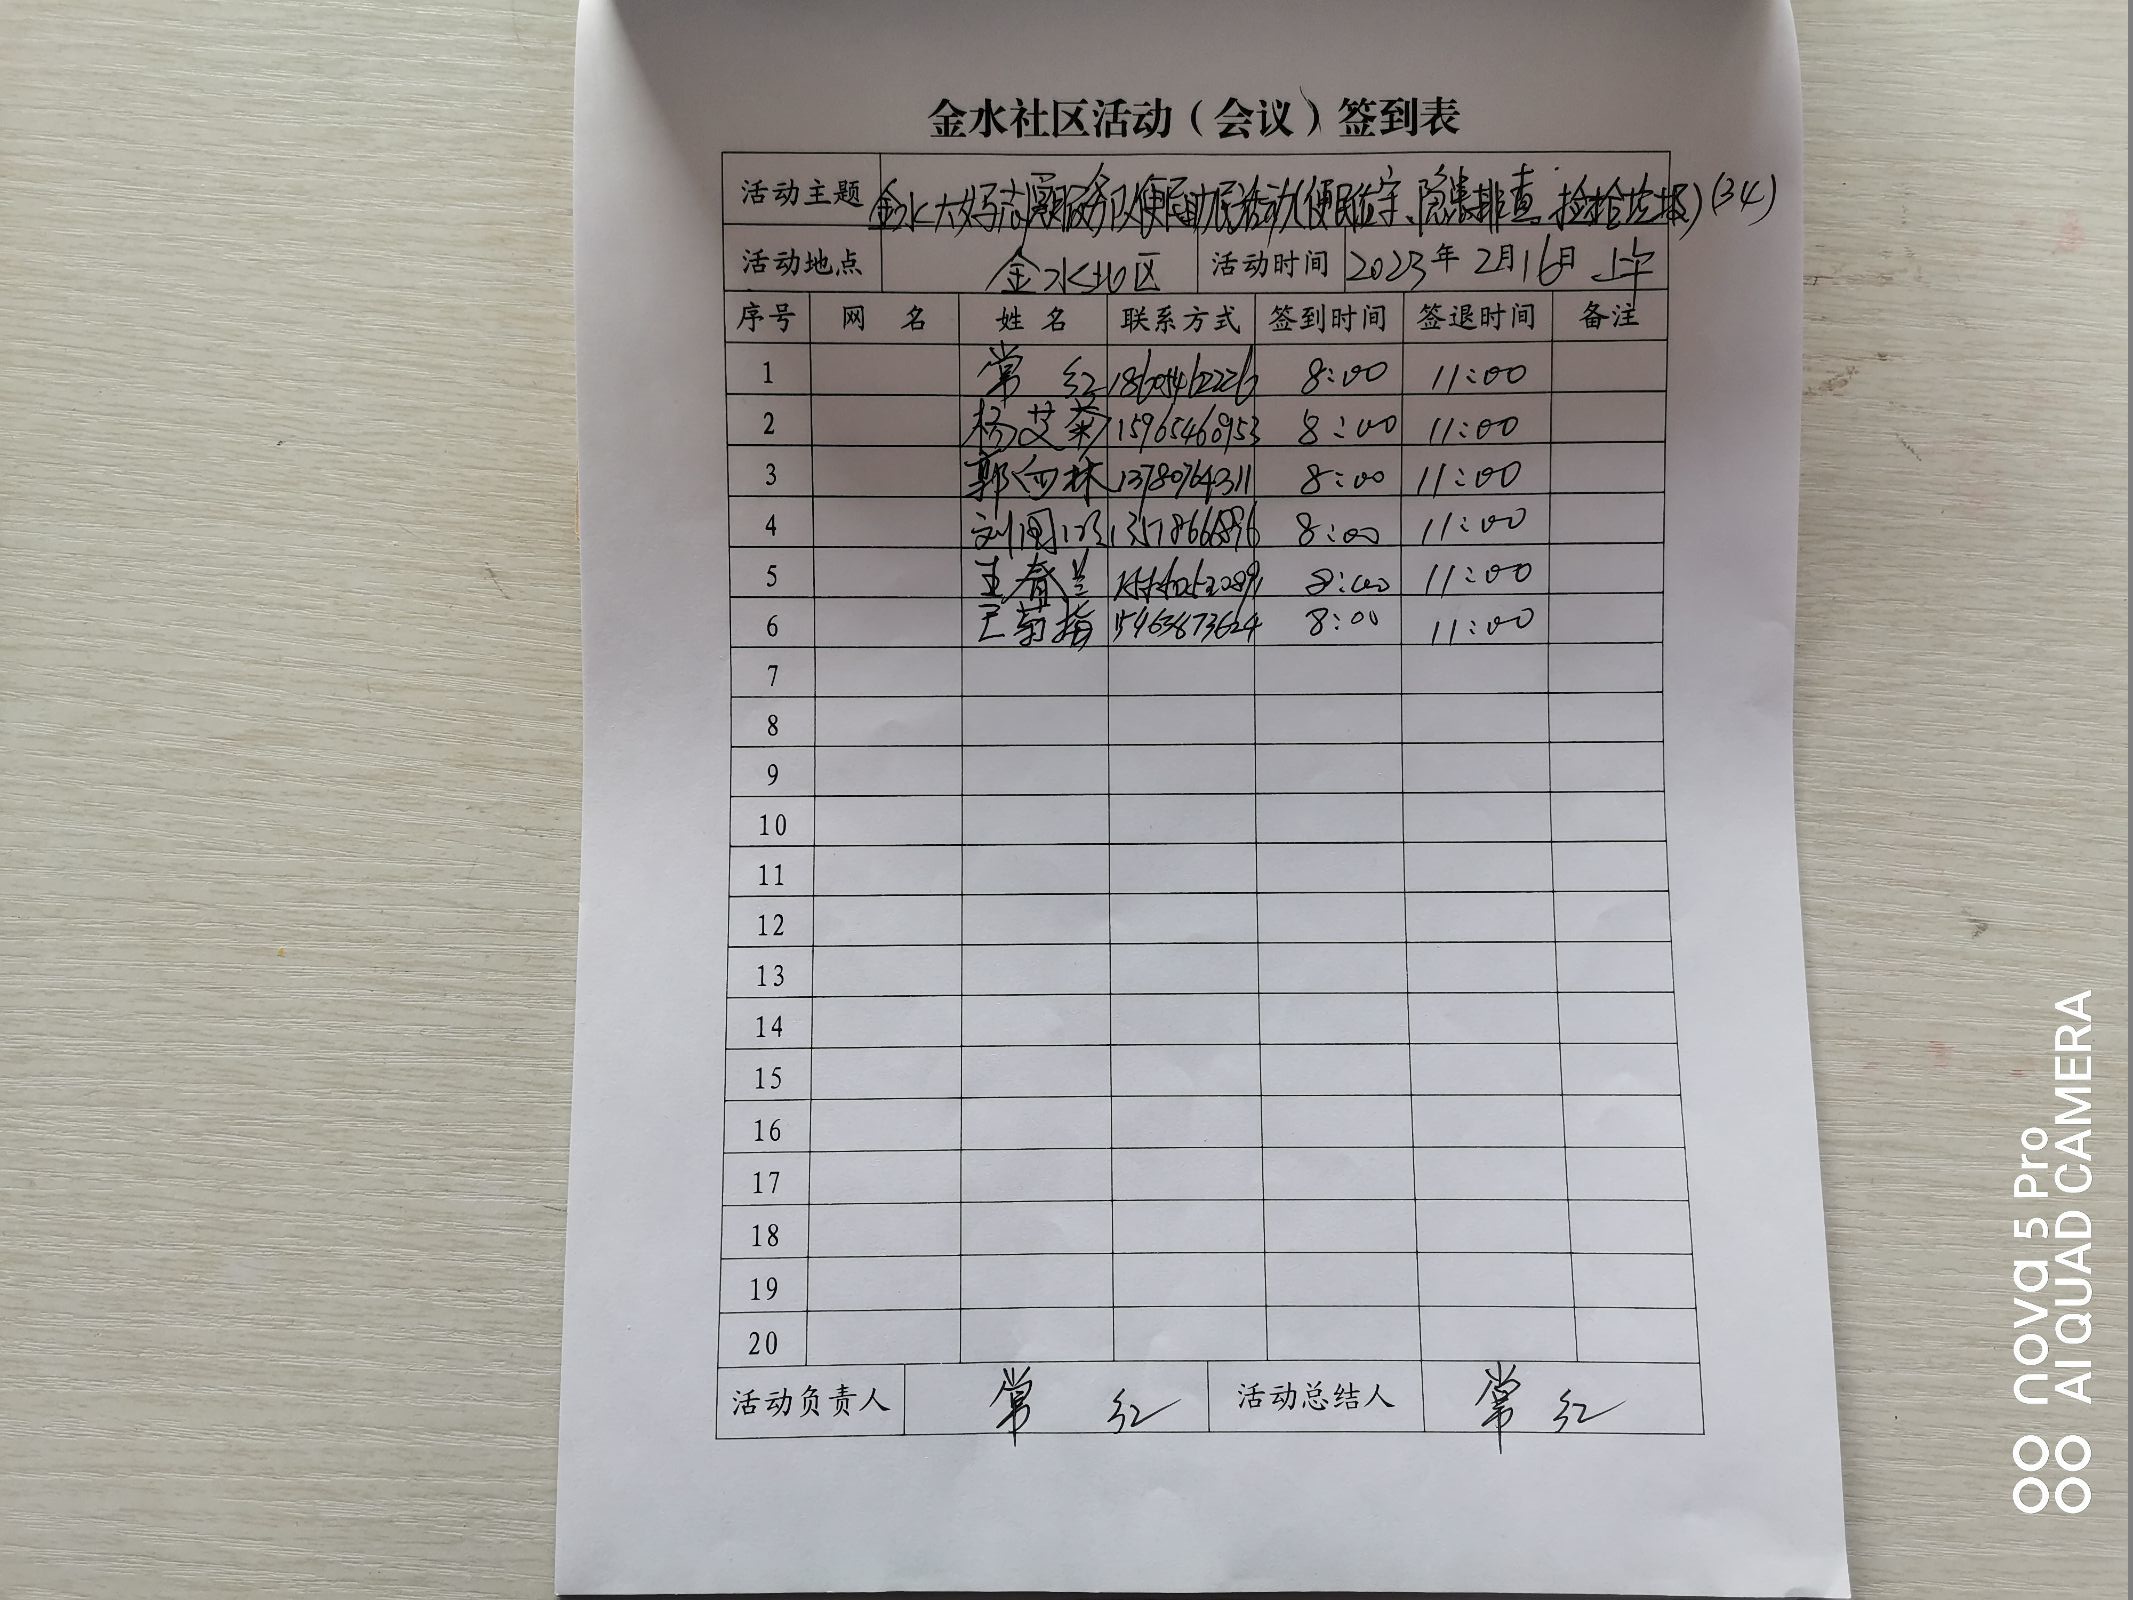 金水社区活动（会议）签到表
活动主题 金水大妈志愿服务队便民助民活动(便民签字、隐患排查、捡拾垃圾)(34)
活动地点 金水社区 活动时间 2023年 2月16日 上午
序号 网 名 姓 名 联系方式 签到时间 签退时间 备注
1 常 红 8:00 11:00
2 杨艾菊 15965460953 8:00 11:00
3 郭向林 13780764311 8:00 11:00
4 8:00 11:00
5 王春兰 8:00 11:00
6 8:00 11:00
7
8
9
10
11
12
13
14
15
16
17
18
19
20
活动负责人 常 红 活动总结人 常 红
nova 5 Pro
AI QUAD CAMERA